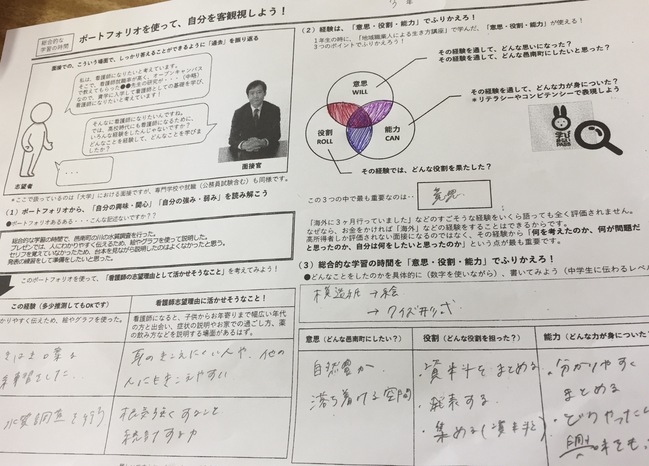 ３年
総合的な
学習の時間
ポートフォリオを使って、自分を客観視しよう！
面接での、こういう場面で、しっかり答えることができるように「過去」を振り返る
私は、看護師になりたいと考えています。
面接官
志望者
＊ここで語っているのは「大学」における面接ですが、専門学校や就職（公務員試験含む）も同様です。
（１）ポートフォリオから、「自分の興味・関心」「自分の強み・弱み」を読み解こう
ポートフォリオあるある・・・こんな記述ないですか？？
総合的な学習の時間で、邑南町の川の水質調査を行った。
プレゼンでは、人にわかりやすく伝えるため、絵やグラフを使って説明した。
セリフを覚えていなかったため、台本を見ながら説明したのはよくなかったと思う。
発表の練習をして準備をしたいと思った。
このポートフォリオを使って、「看護師の志望理由として活かせそうなこと」を考えてみよう！
この経験（多少推測してもOKです）
看護師志望理由に活かせそうなこと！
かりやすく伝えるため、絵やグラフを使った。
看護師になると、子供からお年寄りまで幅広い年代
の方と出会い、症状の説明やお家での過ごし方、薬
の飲み方などを説明する場面があるはず。
耳のきこえにくい人や、他の
人にもきこえやすい
水質調査を行う
根気強くすること
続けする力
（２）経験は、「意思・役割・能力」でふりかえろ！
１年生の時に、「地域職業人による生き方講座」で学んだ、「意思・役割・能力」が使える！
３つのポイントでふりかえろう！
その経験を通して、どんな思いになった？
その経験を通して、どんな邑南町にしたいと思った？
意思
WILL
役割
ROLL
能力
CAN
その経験を通して、どんな力が身についた？
＊リテラシーやコンピテンシーで表現しよう
学び
その経験では、どんな役割を果たした？
この３つの中で最も重要なのは・・
意思
「海外に３ヶ月行っていました」などのすごそうな経験をいくら語っても全く評価されません。
なぜなら、お金をかければ「海外」などの経験をすることはできるからです。
高所得者しか評価されない面接になるのではなく、その経験から「何を考えたのか、何が問題だ
と思ったのか、自分は何をしたいと思ったのか」という点が最も重要です。
（３）総合的な学習の時間を「意思・役割・能力」でふりかえろ！
●どんなことをしたのかを具体的に（数字を使いながら）、書いてみよう（中学生に伝わるレベル
模造紙→絵
→クイズ形式
意思（どんな邑南町にしたい？）
役割（どんな役割を担った？）
能力（どんな力が身についた？）
自然豊か
落ち着ける空間
・資料をまとめる
・発表する
・集める（資料を）
・分かりやすく
まとめる